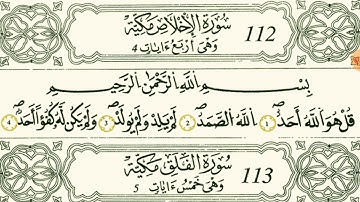 سُورَةُ الْإِخْلَاصِ مَكِّيَّة 112
وَهِيَ أَرْبَعُ ءَايَاتٍ 4
بِسْمِ اللَّهِ الرَّحْمَٰنِ الرَّحِيمِ
قُلْ هُوَ اللَّهُ أَحَدٌ ۖ 1 اللَّهُ الصَّمَدُ ۖ 2 لَمْ يَلِدْ وَلَمْ يُولَدْ ۖ 3 وَلَمْ يَكُن لَّهُ كُفُوًا أَحَدٌ ۖ 4
سُورَةُ الْفَلَقِ مَكِّيَّة 113
وَهِيَ خَمْسُ ءَايَاتٍ 5